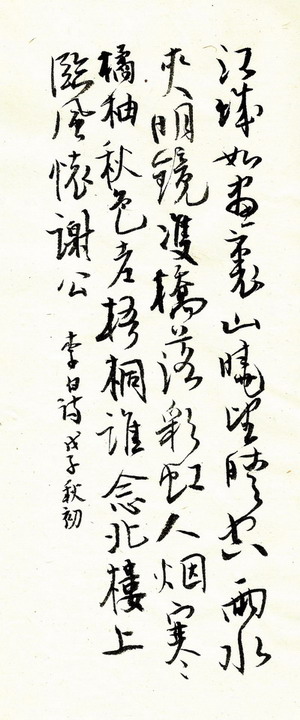 江城如畫裏山曉望晴空兩水
夾明鏡雙橋落彩虹人烟寒
橘柚秋色老梧桐誰念北樓上
臨風懷謝公 李白詩 戊子秋初